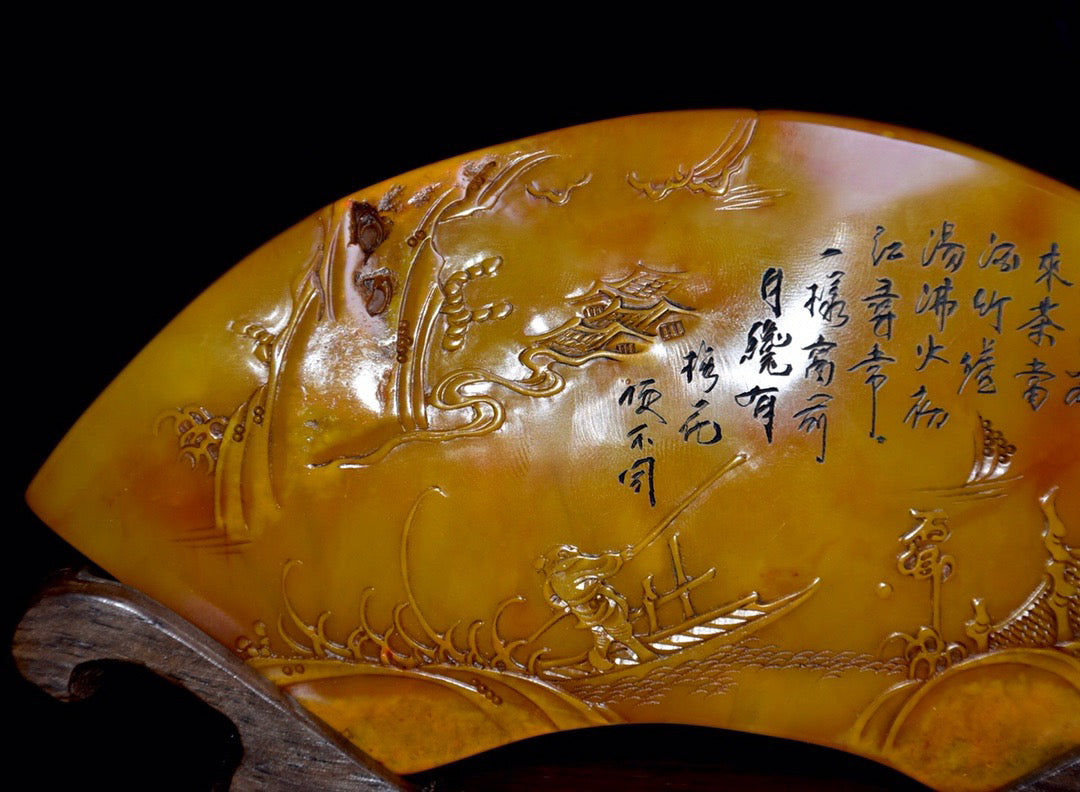 來茶當
酒竹爐
湯沸火初
紅尋常
一樣窗前
月纔有
梅花
便不同